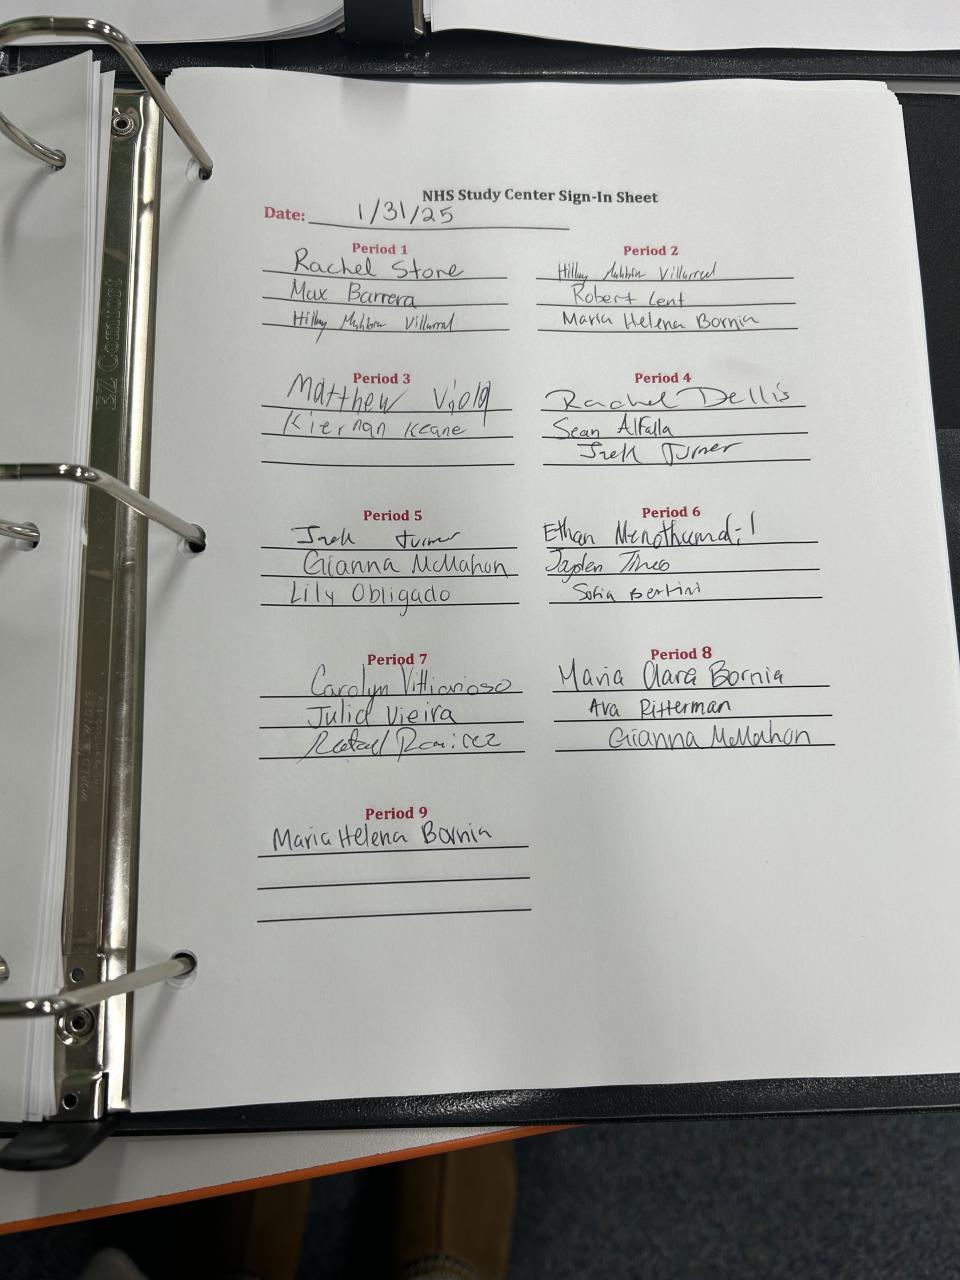 NHS Study Center Sign-In Sheet
Date: 1/31/25
Period 1
Rachel Stone
Max Barrera
Hillary Villarreal
Period 2
Villarreal
Robert Lent
Maria Helena Bornia
Period 3
Matthew Viola
Kiernan Keane
Period 4
Rachel Dellis
Sean Alfalla
Turner
Period 5
Turner
Gianna McMahon
Lily Obligado
Period 6
Ethan
Jayden
Sofia Bertini
Period 7
Carolyn
Julia Vieira
Rafael Ramirez
Period 8
Maria Clara Bornia
Ava Ritterman
Gianna McMahon
Period 9
Maria Helena Bornia
EZ Comfort
WORLD WIDE